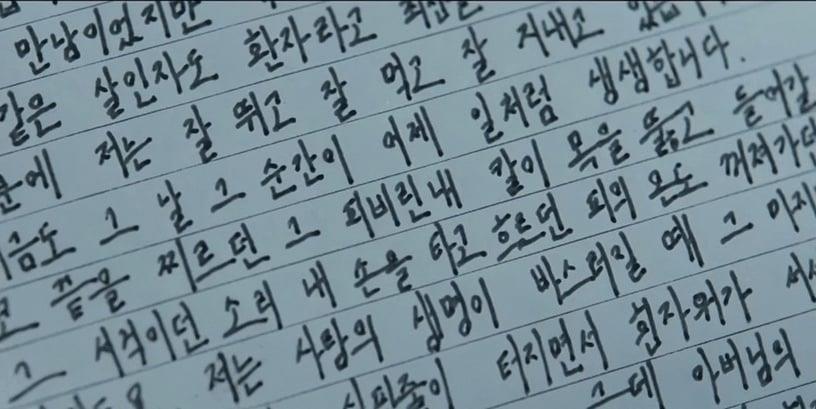 만남이었지만
같은 살인자도 환자라고
저는 잘 뛰고 잘 먹고 잘 지내고 있습니
그 날 그 순간이 어제 일처럼 생생합니다.
끝을 찌르던 그 피비린내 칼이 목을 뚫고 들어갈
그 서걱이던 소리 내 손을 타고 흐르던 피의 온도 꺼져가던
저는 사람의 생명이 바스러질 때 그 마지
터지면서 흰자위가
그때 아버님의